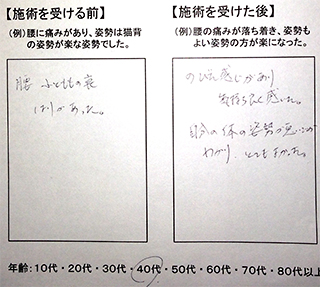 【施術を受ける前】
(例)腰に痛みがあり、姿勢は猫背
の姿勢が楽な姿勢でした。
腰 ふとももの裏
はりがあった。
【施術を受けた後】
(例)腰の痛みが落ち着き、姿勢も
よい姿勢の方が楽になった。
のびた感じがあり
気持ち良く感じた。
自分の体の姿勢が悪いのが
わかり とてもよかった。
年齢:10代・20代・30代・40代・50代・60代・70代・80代以上